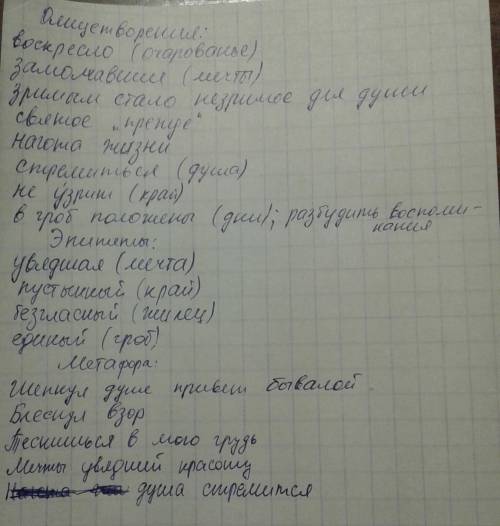 Олицетворения:
воскресло (очарованье)
замолчавшия (мечты)
Зримым стало незримое для души
святое „прежде“
нагота жизни
стремиться (душа)
не узрит (край)
в гроб положены (дни); разбудить воспоми-
нания
Эпитеты:
увядшая (мечта)
пустынный (край)
безгласный (жилец)
единый (гроб)
Метафора:
Шепнул душе привет бывалой
Блеснул взор
Теснишься в мою грудь
Мечты увядшей красоту
душа стремится